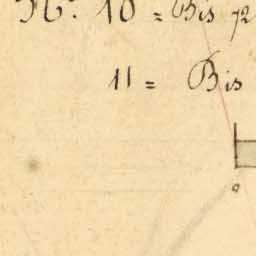 N.º 10 = Bis 72
11 = Bis
a